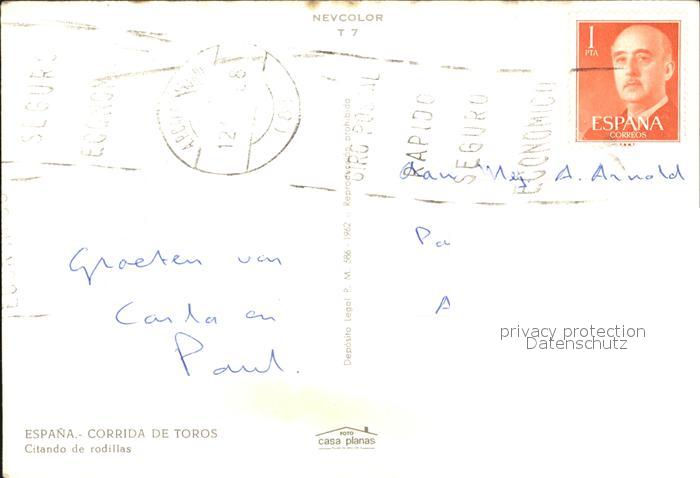 NEVCOLOR
T 7
SEGURO
ECONOM
GIRO POSTAL
RAPIDO
SEGURO
ECONOMICO
1
PTA
ESPAÑA
CORREOS
Aan Mej A. Arnold
Pa
A
Groeten van
Carla en
Paul.
Depósito Legal P. M. 586 - 1962 - Reproducción prohibida
privacy protection
Datenschutz
ESPAÑA.- CORRIDA DE TOROS
Citando de rodillas
FOTO
casa planas